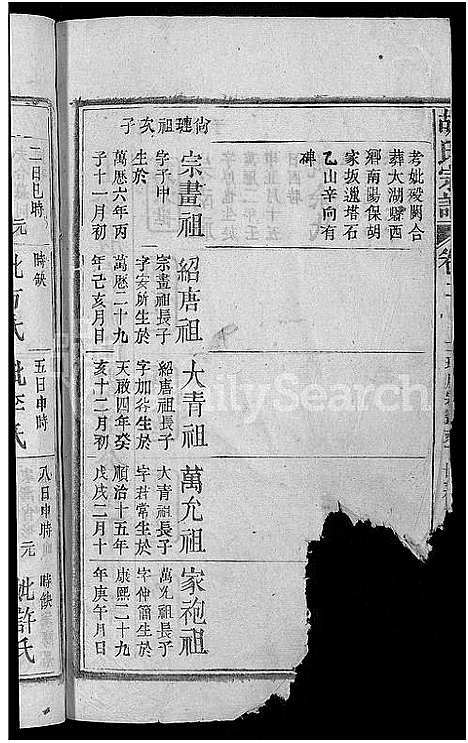 胡氏宗譜
卷二
考妣歿闕合
葬太湖縣西
鄉南陽保胡
家坂邊塔石
乙山辛向有
碑
尚璉祖次子
宗畫祖
字子申
生於
萬歷六年丙
子十一月初
紹唐祖
宗畫祖長子
字安所生於
萬歷二十九
年己亥月日
大青祖
紹唐祖長子
字加谷生於
天啟四年癸
亥十二月初
萬允祖
大青祖長子
字君常生於
順治十五年
戊戌二月十
家袍祖
萬允祖長子
字仲簡生於
康熙二十九
年庚午月日
二日巳時
元
時缺
妣方氏
五日申時
妣李氏
八日申時
元
時缺
妣許氏
FamilySearch